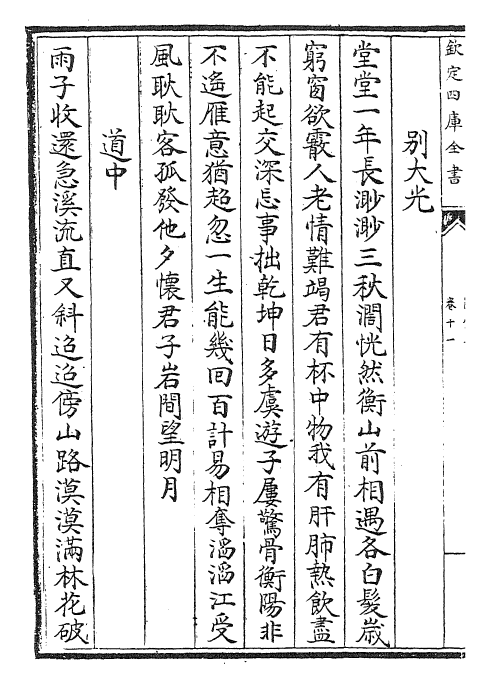 欽定四庫全書
卷十一
別大光
堂堂一年長渺渺三秋濶恍然衡山前相遇各白髮嵗
窮窗欲霰人老情難竭君有杯中物我有肝肺熱飲盡
不能起交深忘事拙乾坤日多虞遊子屢驚骨衡陽非
不遙雁意猶超忽一生能幾回百計易相奪滔滔江受
風耿耿客孤發他夕懷君子岩間望明月
道中
雨子收還急溪流直又斜迢迢傍山路漠漠滿林花破